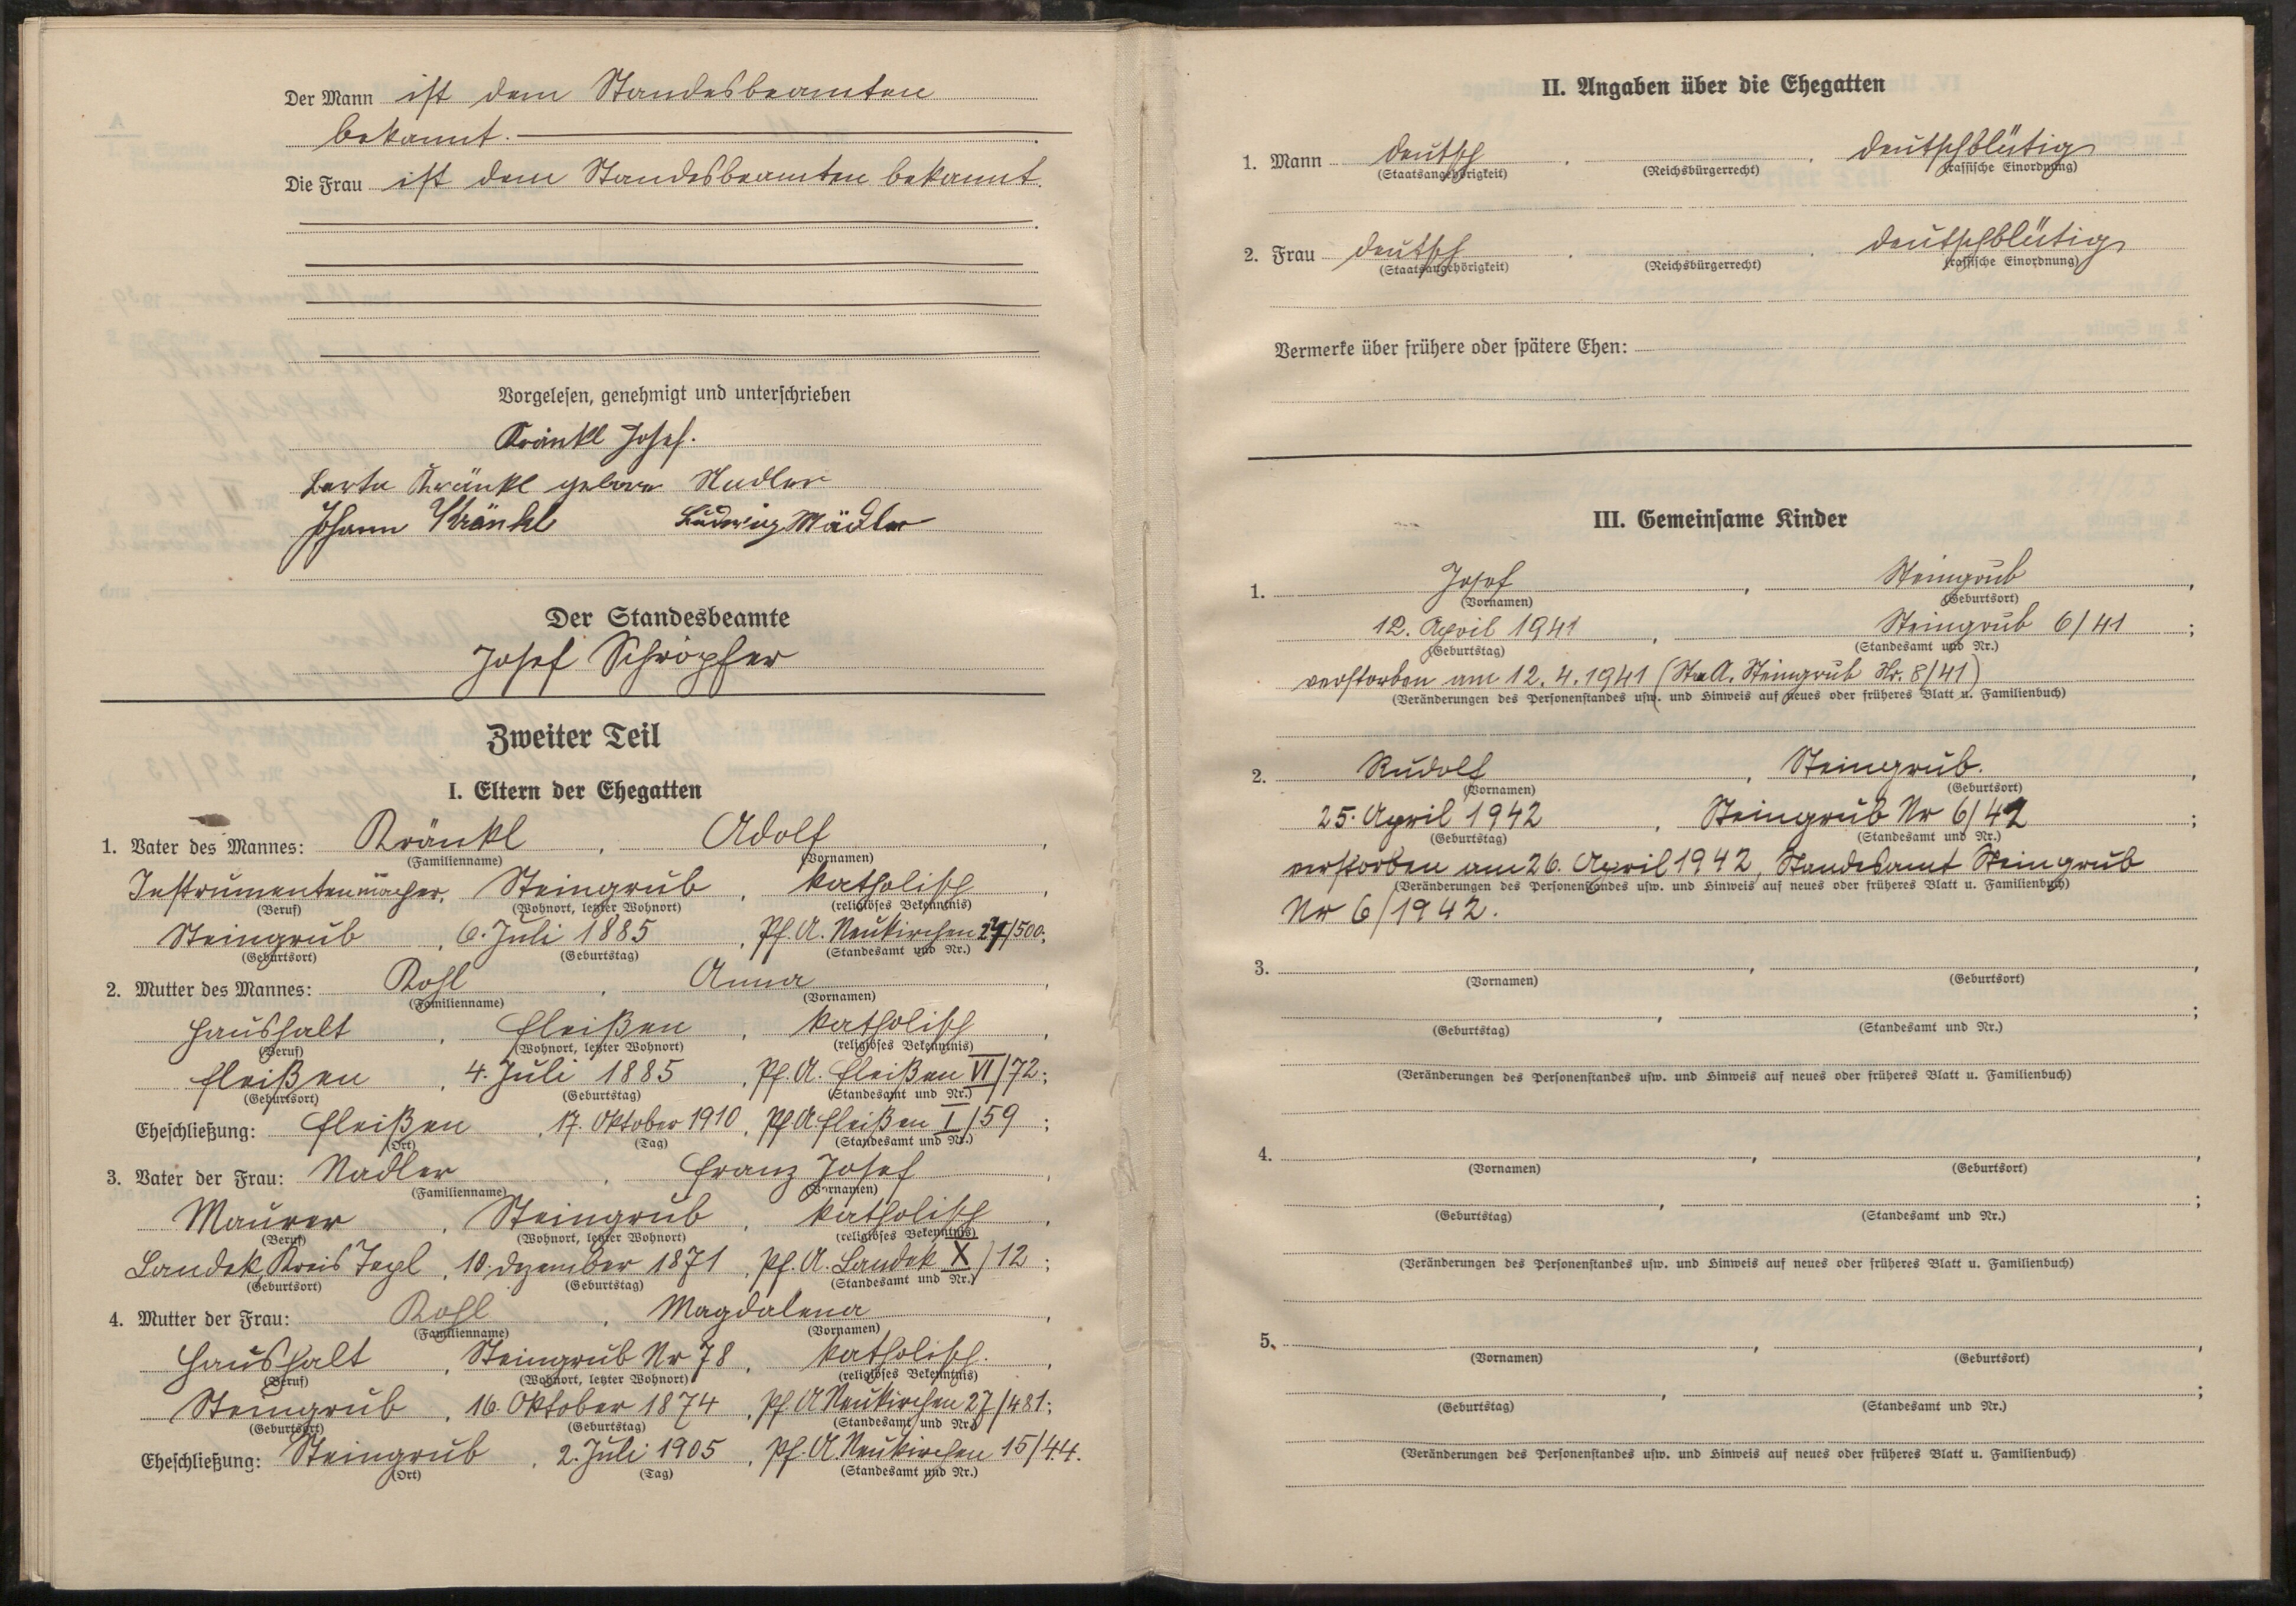 Der Mann ist dem Standesbeamten
bekannt.
Die Frau ist dem Standesbeamten bekannt.
Vorgelesen, genehmigt und unterschrieben
Kränkl Josef.
Kränkl Nadler
Johann Kränkl Ludwig Mädler
Der Standesbeamte
Josef Schröpfer
Zweiter Teil
I. Eltern der Ehegatten
1. Vater des Mannes: Kränkl, Adolf,
(Familienname) (Vornamen)
Instrumentenmacher, Steingrub, katholisch,
(Beruf) (Wohnort, letzter Wohnort) (religiöses Bekenntnis)
Steingrub, 6. Juli 1885, Pf. A. Neukirchen 27/500;
(Geburtsort) (Geburtstag) (Standesamt und Nr.)
2. Mutter des Mannes: Kohl, Anna,
(Familienname) (Vornamen)
Haushalt, Fleißen, katholisch,
(Beruf) (Wohnort, letzter Wohnort) (religiöses Bekenntnis)
Fleißen, 4. Juli 1885, Pf. A. Fleißen VI/72;
(Geburtsort) (Geburtstag) (Standesamt und Nr.)
Eheschließung: Fleißen, 17. Oktober 1910, Pf. A. Fleißen I/59;
(Ort) (Tag) (Standesamt und Nr.)
3. Vater der Frau: Nadler, Franz Josef,
(Familienname) (Vornamen)
Maurer, Steingrub, katholisch,
(Beruf) (Wohnort, letzter Wohnort) (religiöses Bekenntnis)
Landek, Kreis Tepl, 10. Dezember 1871, Pf. A. Landek X/12;
(Geburtsort) (Geburtstag) (Standesamt und Nr.)
4. Mutter der Frau: Kohl, Magdalena,
(Familienname) (Vornamen)
Haushalt, Steingrub Nr 78, katholisch.,
(Beruf) (Wohnort, letzter Wohnort) (religiöses Bekenntnis)
Steingrub, 16. Oktober 1874, Pf. A Neukirchen 27/481;
(Geburtsort) (Geburtstag) (Standesamt und Nr.)
Eheschließung: Steingrub, 2. Juli 1905, Pf. A. Neukirchen 15/44.
(Ort) (Tag) (Standesamt und Nr.)
II. Angaben über die Ehegatten
1. Mann deutsch, , deutschblütig
(Staatsangehörigkeit) (Reichsbürgerrecht) (rassische Einordnung)
2. Frau deutsch, , deutschblütig
(Staatsangehörigkeit) (Reichsbürgerrecht) (rassische Einordnung)
Vermerke über frühere oder spätere Ehen:
III. Gemeinsame Kinder
1. Josef, Steingrub,
(Vornamen) (Geburtsort)
12. April 1941, Steingrub 6/41;
(Geburtstag) (Standesamt und Nr.)
verstorben am 12. 4. 1941 (St. A. Steingrub Nr. 8/41)
(Veränderungen des Personenstandes usw. und Hinweis auf neues oder früheres Blatt u. Familienbuch)
2. Rudolf, Steingrub.,
(Vornamen) (Geburtsort)
25. April 1942, Steingrub Nr 6/42;
(Geburtstag) (Standesamt und Nr.)
verstorben am 26. April 1942, Standesamt Steingrub
(Veränderungen des Personenstandes usw. und Hinweis auf neues oder früheres Blatt u. Familienbuch)
Nr 6/1942.
3. , ,
(Vornamen) (Geburtsort)
, ;
(Geburtstag) (Standesamt und Nr.)
(Veränderungen des Personenstandes usw. und Hinweis auf neues oder früheres Blatt u. Familienbuch)
4. , ,
(Vornamen) (Geburtsort)
, ;
(Geburtstag) (Standesamt und Nr.)
(Veränderungen des Personenstandes usw. und Hinweis auf neues oder früheres Blatt u. Familienbuch)
5. , ,
(Vornamen) (Geburtsort)
, ;
(Geburtstag) (Standesamt und Nr.)
(Veränderungen des Personenstandes usw. und Hinweis auf neues oder früheres Blatt u. Familienbuch)